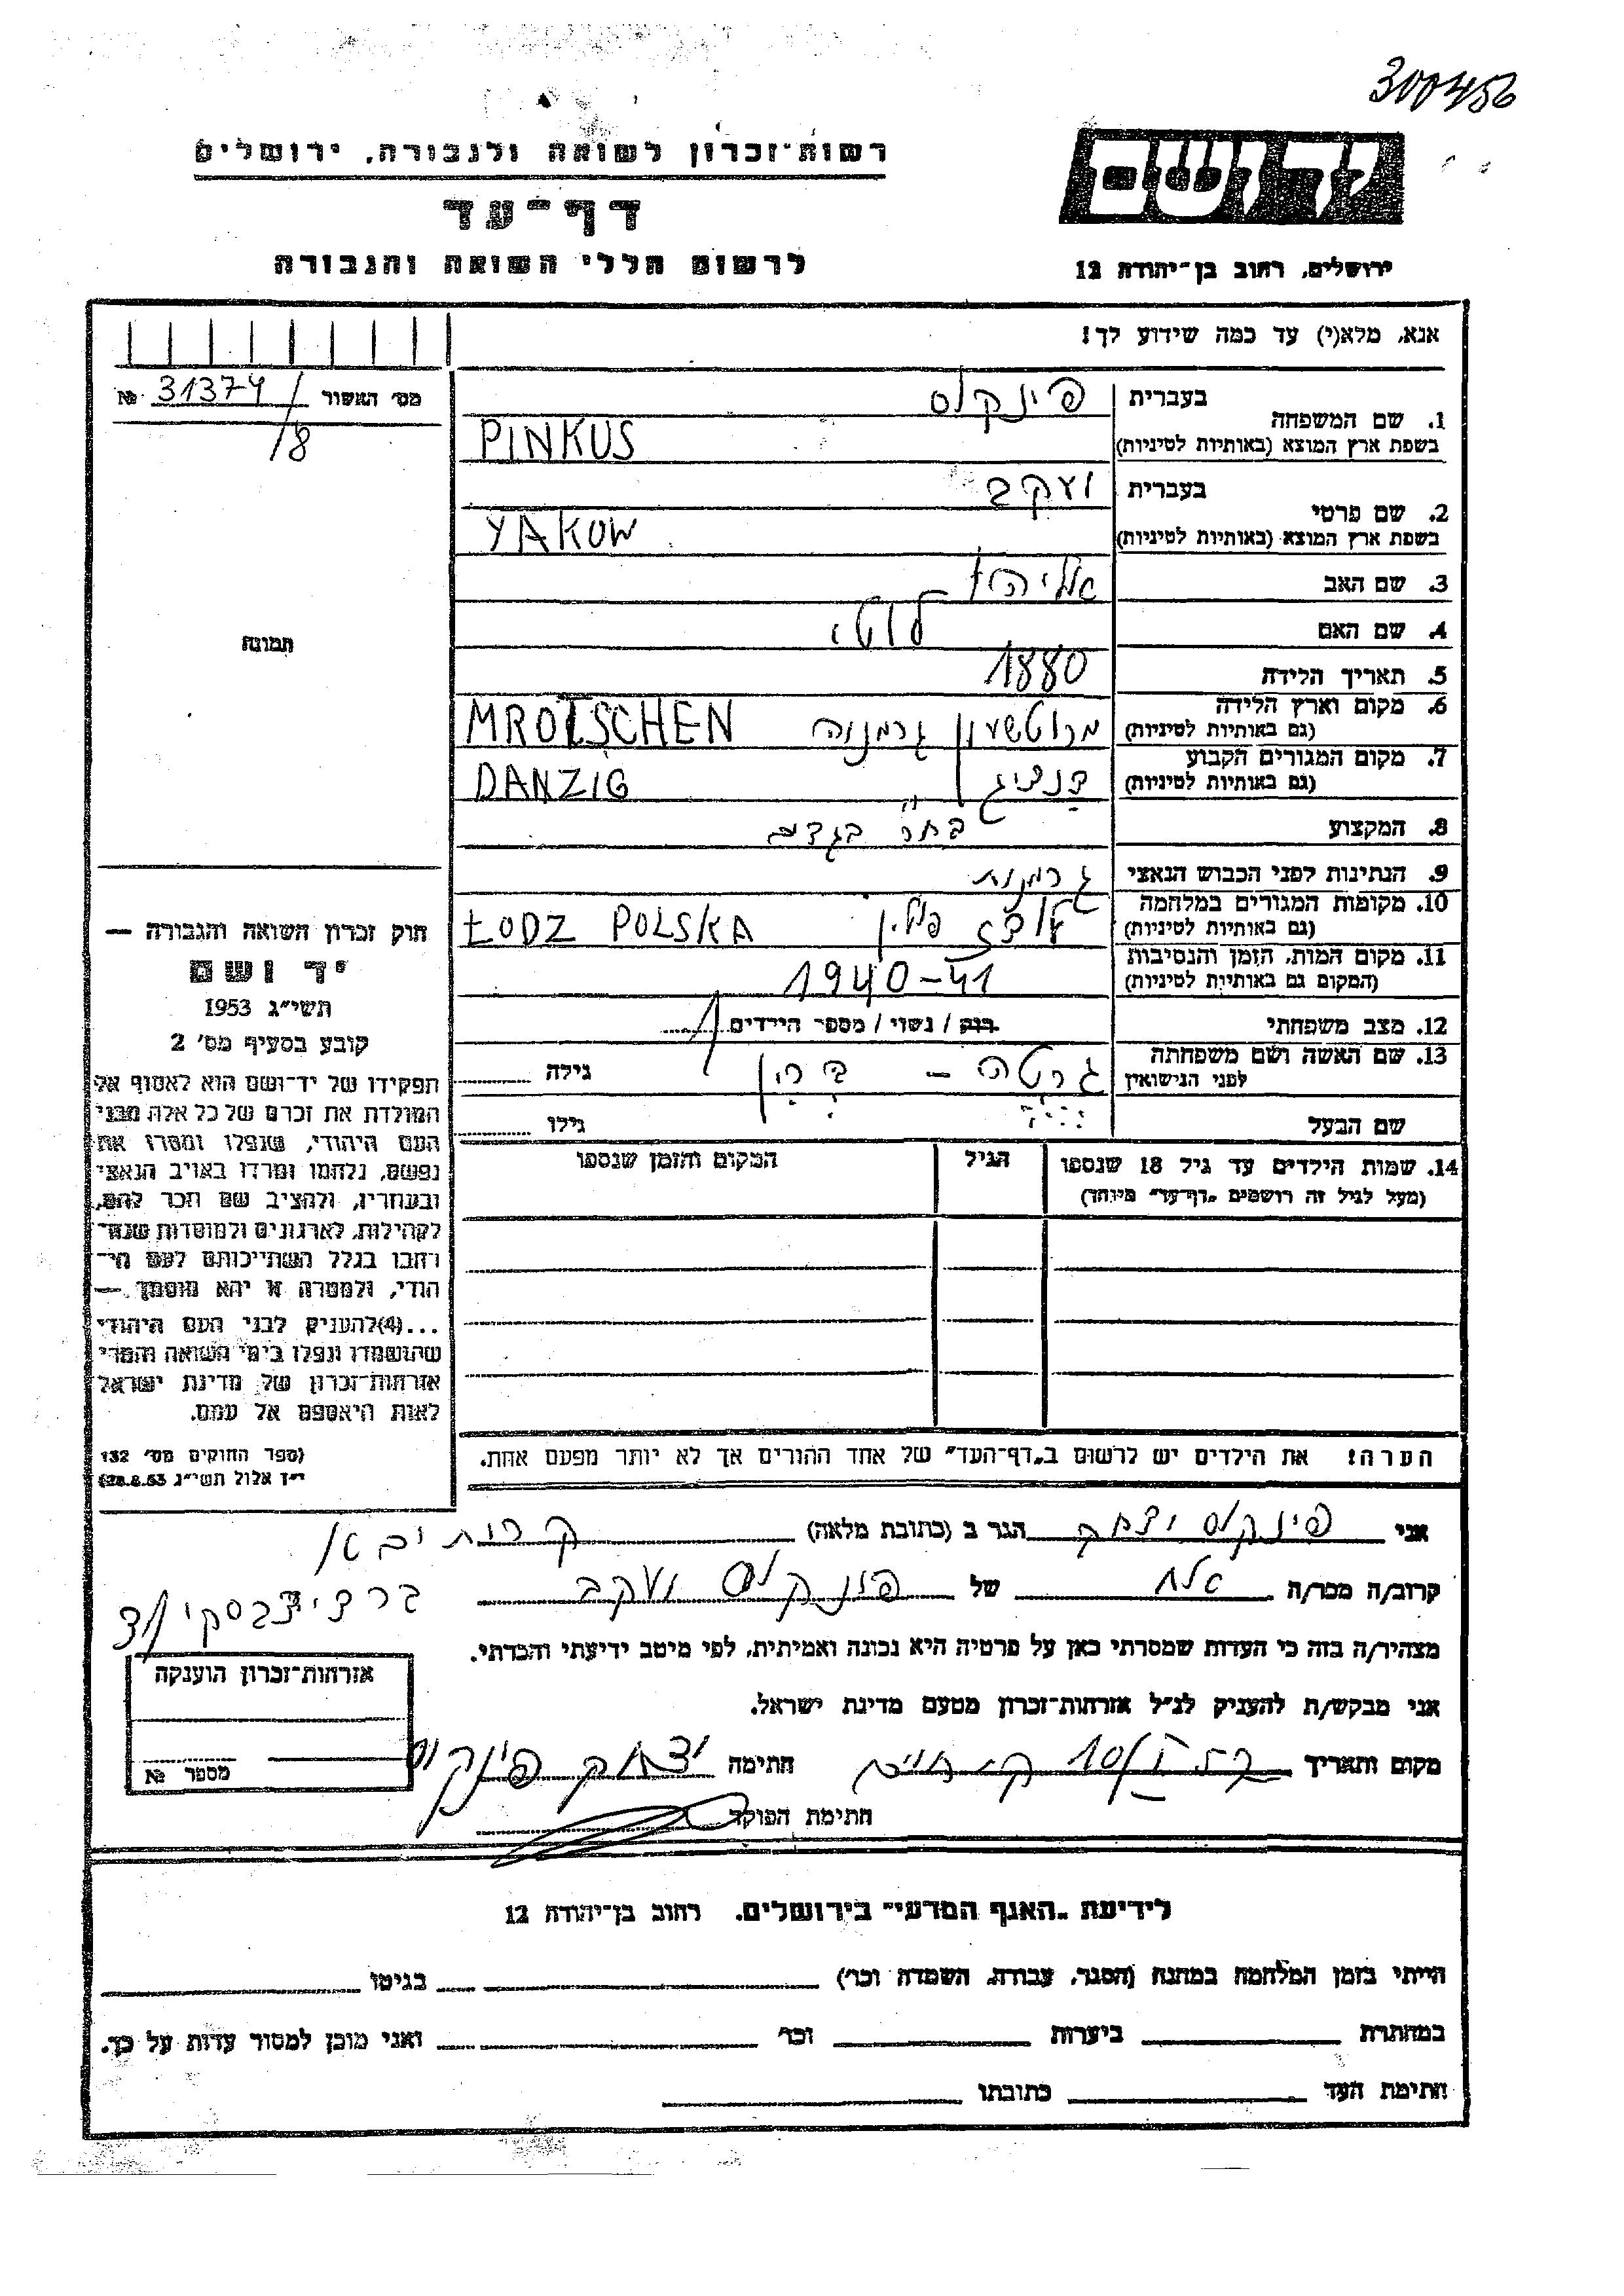 300456
רשות־זכרון לשואה ולגבורה, ירושלים
יד ושם
דף־עד
לרשום חללי השואה והגבורה
ירושלים, רחוב בן־יהודה 12
אנא, מלא(י) עד כמה שידוע לך!
מס׳ האשור № 31374/
/8
1. שם המשפחה
בעברית פינקוס
בשפת ארץ המוצא (באותיות לטיניות) PINKUS
2. שם פרטי
בעברית יעקב
בשפת ארץ המוצא (באותיות לטיניות) YAKOW
3. שם האב אליהו
4. שם האם לוטי
תמונה
5. תאריך הלידה 1880
6. מקום וארץ הלידה (גם באותיות לטיניות) מרוטשען גרמניה MROTSCHEN
7. מקום המגורים הקבוע (גם באותיות לטיניות) דנציג DANZIG
8. המקצוע
9. הנתינות לפני הכבוש הנאצי גרמנית
10. מקומות המגורים במלחמה (גם באותיות לטיניות) לודז פולין ŁODZ POLSKA
11. מקום המות, הזמן והנסיבות (המקום גם באותיות לטיניות) 1940-41
12. מצב משפחתי רוק / נשוי / מספר הילדים 1
13. שם האשה ושם משפחתה לפני הנישואין גרטה – גילה
שם הבעל גילו
14. שמות הילדים עד גיל 18 שנספו הגיל המקום והזמן שנספו
(מעל לגיל זה רושמים „דף־עד״ מיוחד)
חוק זכרון השואה והגבורה —
יד ושם
תשי״ג 1953
קובע בסעיף מס׳ 2
תפקידו של יד־ושם הוא לאסוף אל
המולדת את זכרם של כל אלה מבני
העם היהודי, שנפלו ומסרו את
נפשם, נלחמו ומרדו באויב הנאצי
ובעוזריו, ולהציב שם וזכר להם,
לקהילות, לארגונים ולמוסדות שנח־
רבו בגלל השתייכותם לעם הי־
הודי, ולמטרה זו יהא מוסמך —
...(4)להעניק לבני העם היהודי
שהושמדו ונפלו בימי השואה והמרי
אזרחות־זכרון של מדינת ישראל
לאות היאספם אל עמם.
(ספר החוקים מס׳ 132
י״ז אלול תשי״ג 28.8.53)
הערה! את הילדים יש לרשום ב„דף־העד״ של אחד ההורים אך לא יותר מפעם אחת.
אני פינקוס יצחק הגר ב (כתובת מלאה)
קרוב/ה מכר/ה אח של פינקוס יעקב
מצהיר/ה בזה כי העדות שמסרתי כאן על פרטיה היא נכונה ואמיתית, לפי מיטב ידיעתי והכרתי.
אני מבקש/ת להעניק לנ״ל אזרחות־זכרון מטעם מדינת ישראל.
מקום ותאריך חתימה יצחק פינקוס
חתימת הפוקד
אזרחות־זכרון הוענקה
מספר №
לידיעת „האגף המדעי״ בירושלים. רחוב בן־יהודה 12
הייתי בזמן המלחמה במחנה (הסגר, עבודה, השמדה וכו׳) בגיטו
במחתרת ביערות וכו׳ ואני מוכן למסור עדות על כך.
חתימת העד כתובתו